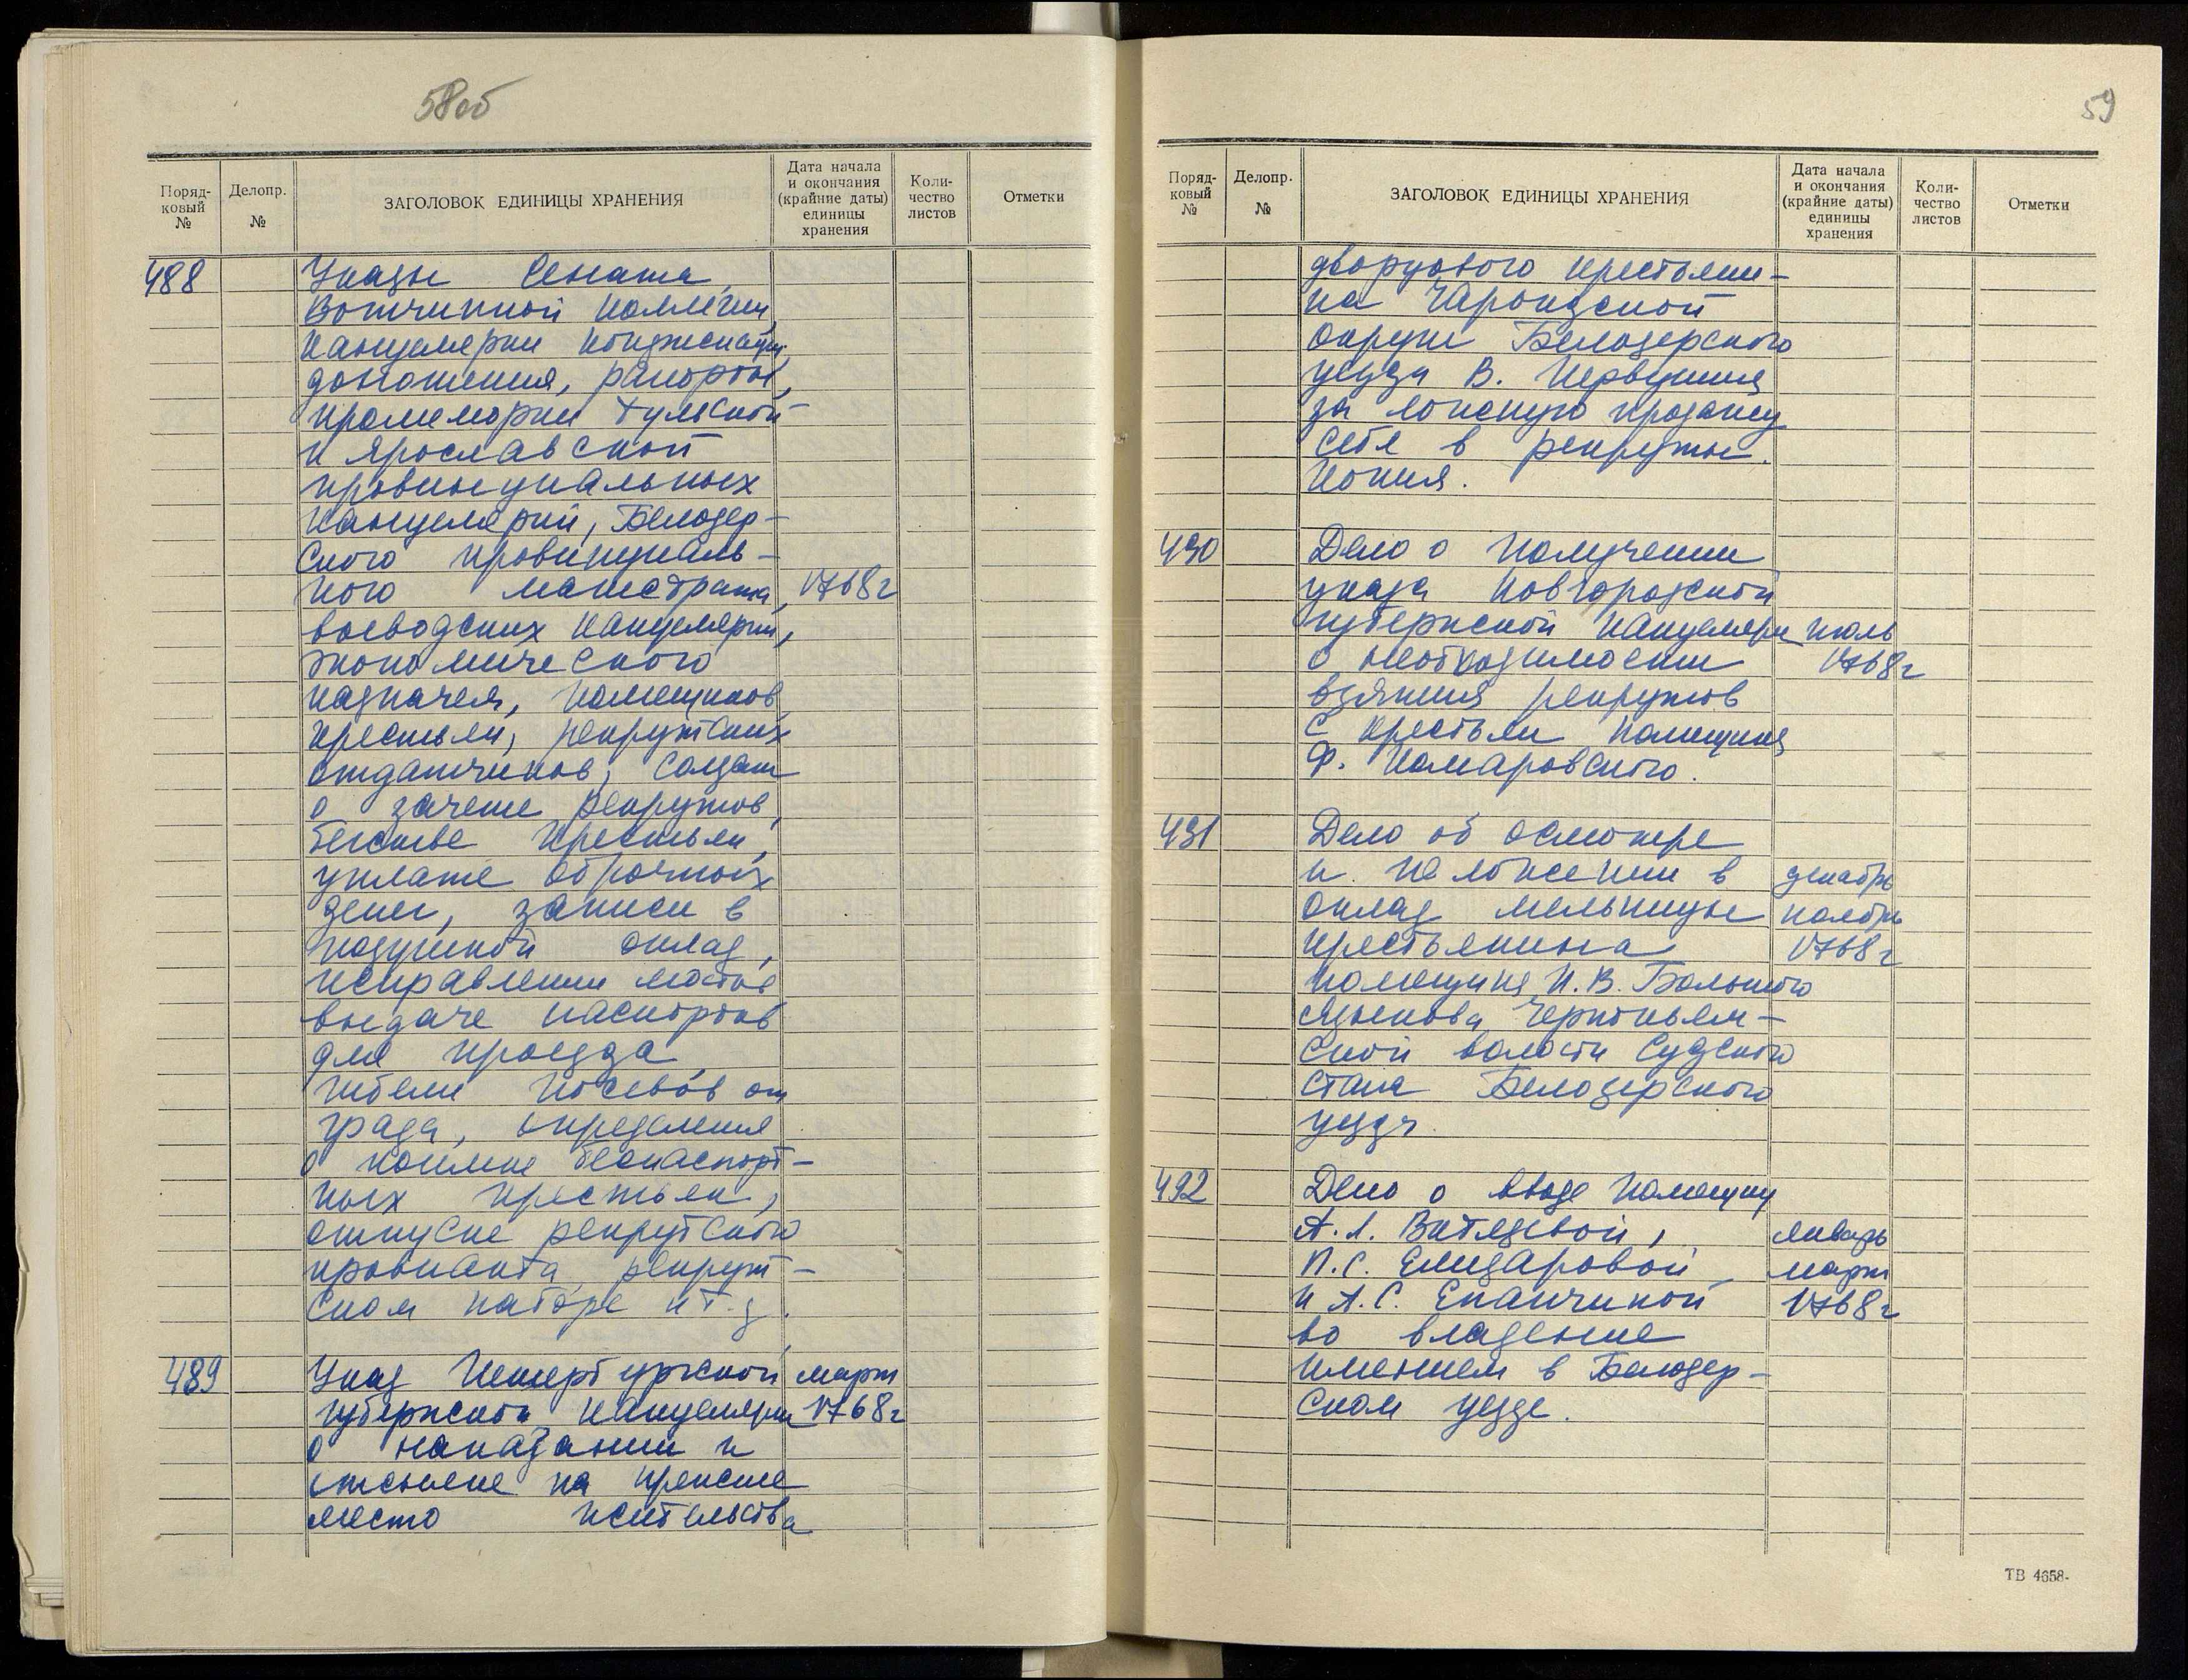 58об
Поряд-
ковый
№
Делопр.
№
ЗАГОЛОВОК ЕДИНИЦЫ ХРАНЕНИЯ
Дата начала
и окончания
(крайние даты)
единицы
хранения
Коли-
чество
листов
Отметки
488
Указы Сената,
Вотчинной коллегии,
канцелярии конфискации,
доношения, рапорты,
промемории Тульской
и Ярославской
провинциальных
канцелярий, Белозер-
ского провинциаль-
ного магистрата, 1768г
воеводских канцелярий,
экономического
казначея, помещиков,
крестьян, рекрутских
отдатчиков, солдат
о зачете рекрутов,
бегстве крестьян,
уплате оброчных
денег, записи в
подушной оклад,
исправлении мостов
выдаче паспортов
для проезда,
гибели посевов от
града, определения
о поимке беспаспорт-
ных крестьян,
отпуске рекрутского
провианта, рекрут-
ском наборе и т.д.
489 Указ Петербургской март
губернской канцелярии 1768г
о наказании и
отсылке на прежнее
место жительства
59
Поряд-
ковый
№
Делопр.
№
ЗАГОЛОВОК ЕДИНИЦЫ ХРАНЕНИЯ
Дата начала
и окончания
(крайние даты)
единицы
хранения
Коли-
чество
листов
Отметки
дворцового крестьяни-
на Чарондской
округи Белозерского
уезда В.
за ложную продажу
себя в рекруты.
Копия.
490 Дело о получении
указа Новгородской
губернской канцелярии июль
о необходимости 1768г
взятия рекрутов
с крестьян помещика
Ф. Комаровского.
491 Дело об осмотре
и положении в декабрь
оклад мельницы ноябрь
крестьянина 1768г
помещика И.В. Большого
ской волости Судского
стана Белозерского
уезда.
492 Дело о вводе помещиц
А.Л. январь
П.С. Елизаровой март
и А.С. Епанчиной 1768г
во владение
имением в Белозер-
ском уезде.
ТВ 4658-